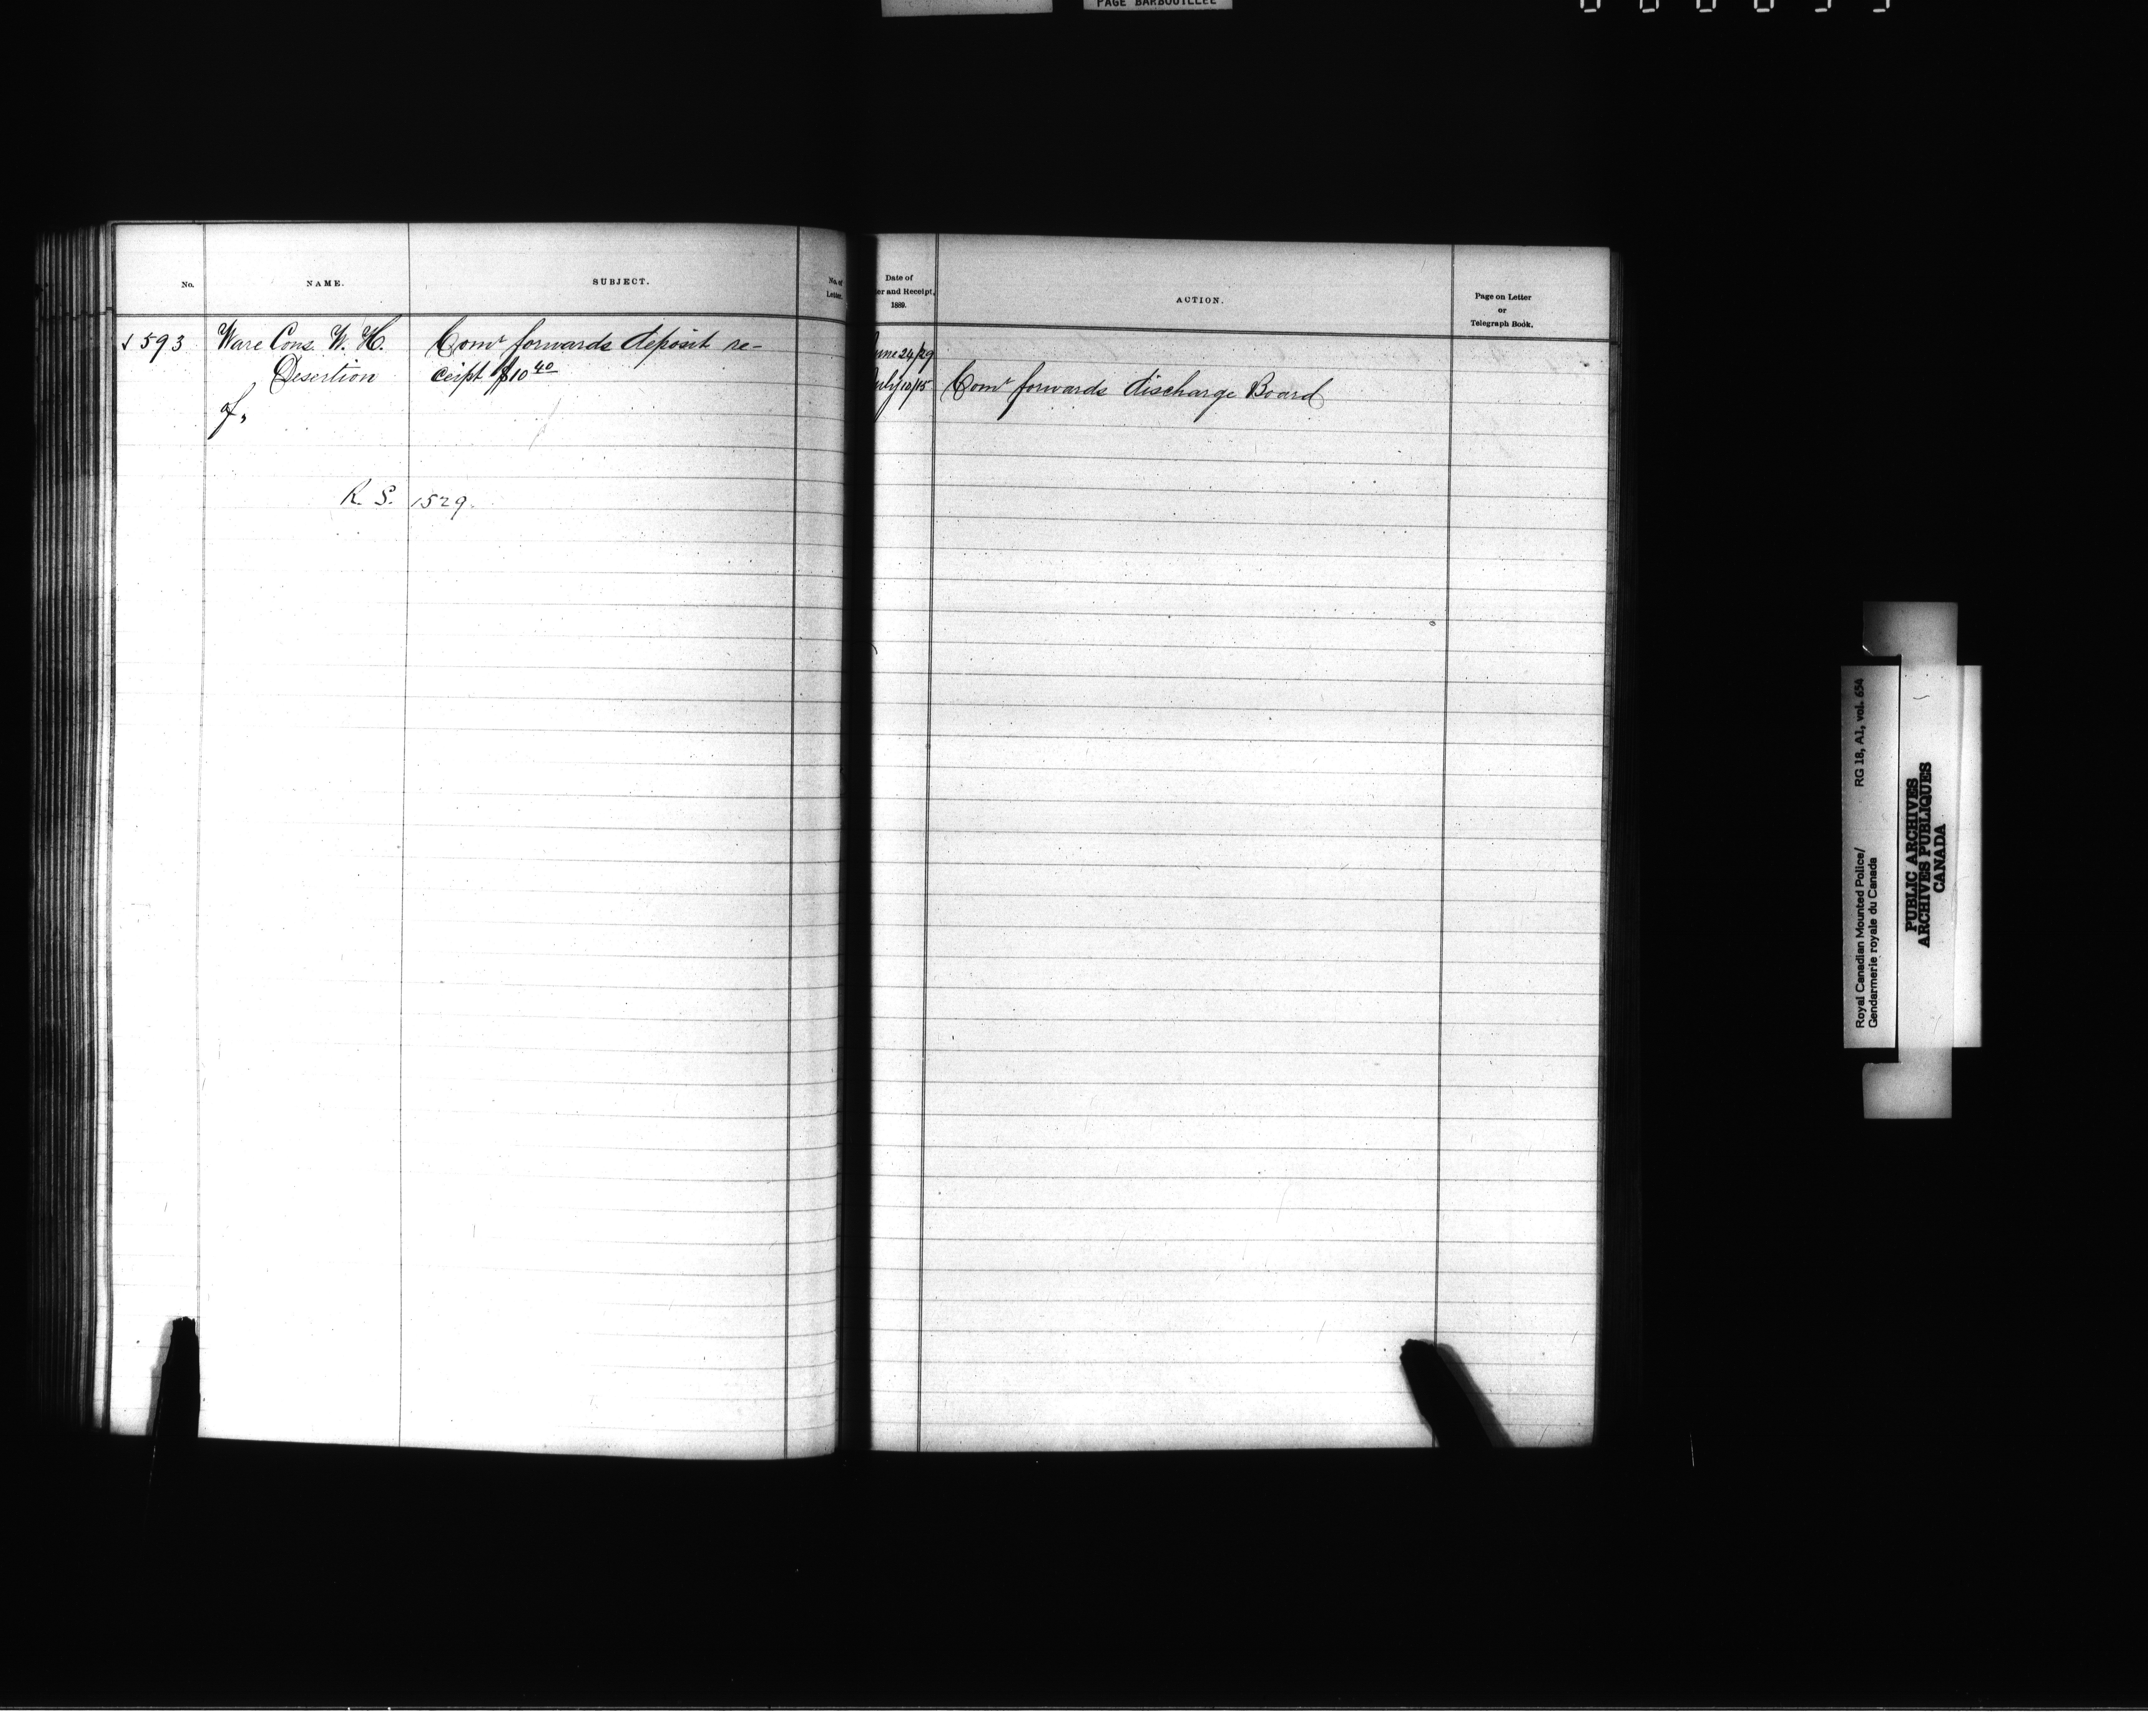 PAGE BARBOUILLEE
No.
NAME.
SUBJECT.
No. of
Letter.
Date of
er and Receipt,
1889.
ACTION.
Page on Letter
or
Telegraph Book.
593 Ware Cons. W. H. Comr forwards deposit re-
Desertion ceipt $10 40
of,
R. S. 1529.
June 24/29
July 10/15 Comr forwards discharge Board
Royal Canadian Mounted Police/ RG 18, A1, vol. 654
Gendarmerie royale du Canada
PUBLIC ARCHIVES
ARCHIVES PUBLIQUES
CANADA